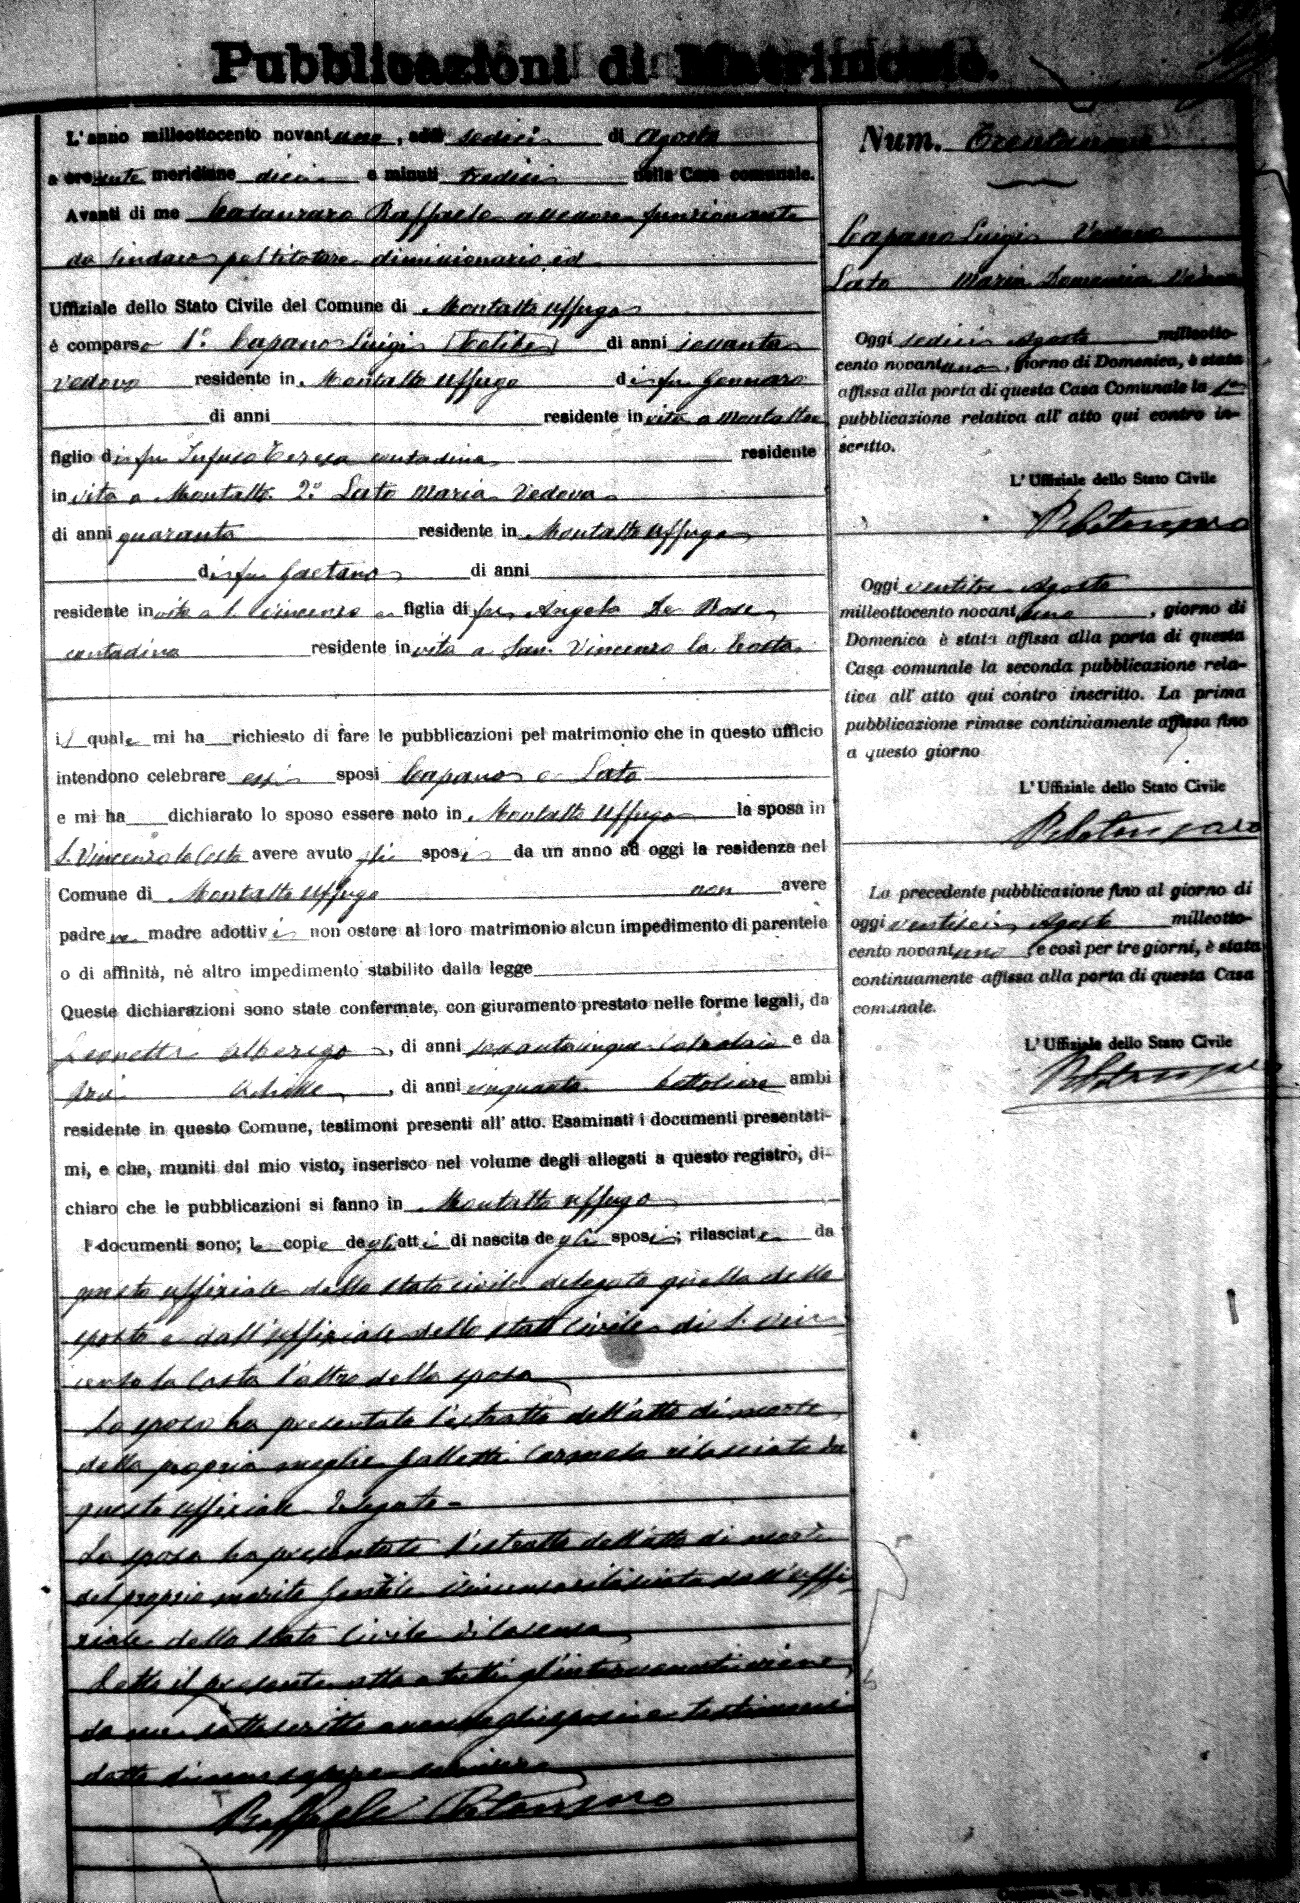 Pubblicazioni di Matrimonio.
L'anno milleottocento novantuno, addì sedici di Agosto
a ore ante meridiane dieci e minuti tredici nella Casa comunale.
Avanti di me Catanzaro Raffaele assessore funzionante
da Sindaco dimissionario ed
Uffiziale dello Stato Civile del Comune di Montalto Uffugo
è comparso 1º Capano Luigi di anni sessanta
vedovo residente in Montalto Uffugo di fu Gennaro
di anni residente in vita a Montalto
figlio di fu Teresa contadina residente
in vita a Montalto 2º Lato Maria Vedova
di anni quaranta residente in Montalto Uffugo
di fu Gaetano di anni
residente in vita a S. Vincenzo figlia di fu Angela De Rose
contadina residente in vita a San Vincenzo la Costa
i quale mi ha richiesto di fare le pubblicazioni pel matrimonio che in questo ufficio
intendono celebrare essi sposi Capano e Lato
e mi ha dichiarato lo sposo essere nato in Montalto Uffugo la sposa in
S. Vincenzo la Costa avere avuto gli sposi da un anno ad oggi la residenza nel
Comune di Montalto Uffugo non avere
padre ne madre adottivi non ostare al loro matrimonio alcun impedimento di parentela
o di affinità, nè altro impedimento stabilito dalla legge
Queste dichiarazioni sono state confermate, con giuramento prestato nelle forme legali, da
Leonetti Alberigo, di anni sessantacinque e da
Achille, di anni cinquanta ambi
residente in questo Comune, testimoni presenti all'atto. Esaminati i documenti presentati-
mi, e che, muniti dal mio visto, inserisco nel volume degli allegati a questo registro, di-
chiaro che le pubblicazioni si fanno in Montalto Uffugo
I documenti sono; le copie degli atti di nascita degli sposi; rilasciate da
questo uffiziale dello stato civile delegato quella dello
sposo e dall'uffiziale dello stato civile di S. Vin
cenzo la Costa l'altra della sposa
Lo sposo ha presentato l'estratto dell'atto di morte
della propria moglie Galletti Carmela rilasciato da
questo uffiziale delegato
La sposa ha presentato l'estratto dell'atto di morte
del proprio marito Gentile Vincenzo rilasciato dall'uffi
ziale dello Stato Civile di Cosenza
Letto il presente atto a tutti gl'intervenuti viene
da me sottoscritto avendo gli sposi e testimoni
detto di non sapere scrivere
Raffaele Catanzaro
Num. Trentanove
Capano Luigi Vedovo
Lato Maria Domenica Vedova
Oggi sedici Agosto milleotto-
cento novantuno, giorno di Domenica, è stata
affissa alla porta di questa Casa Comunale la 1ª
pubblicazione relativa all'atto qui contro in-
scritto.
L'Uffiziale dello Stato Civile
R. Catanzaro
Oggi ventitre Agosto
milleottocento novantuno, giorno di
Domenica è stata affissa alla porta di questa
Casa comunale la seconda pubblicazione rela-
tiva all'atto qui contro inscritto. La prima
pubblicazione rimase continuamente affissa fino
a questo giorno
L'Uffiziale dello Stato Civile
R. Catanzaro
La precedente pubblicazione fino al giorno di
oggi ventisei Agosto milleotto-
cento novantuno, e così per tre giorni, è stata
continuamente affissa alla porta di questa Casa
comunale.
L'Uffiziale dello Stato Civile
R. Catanzaro